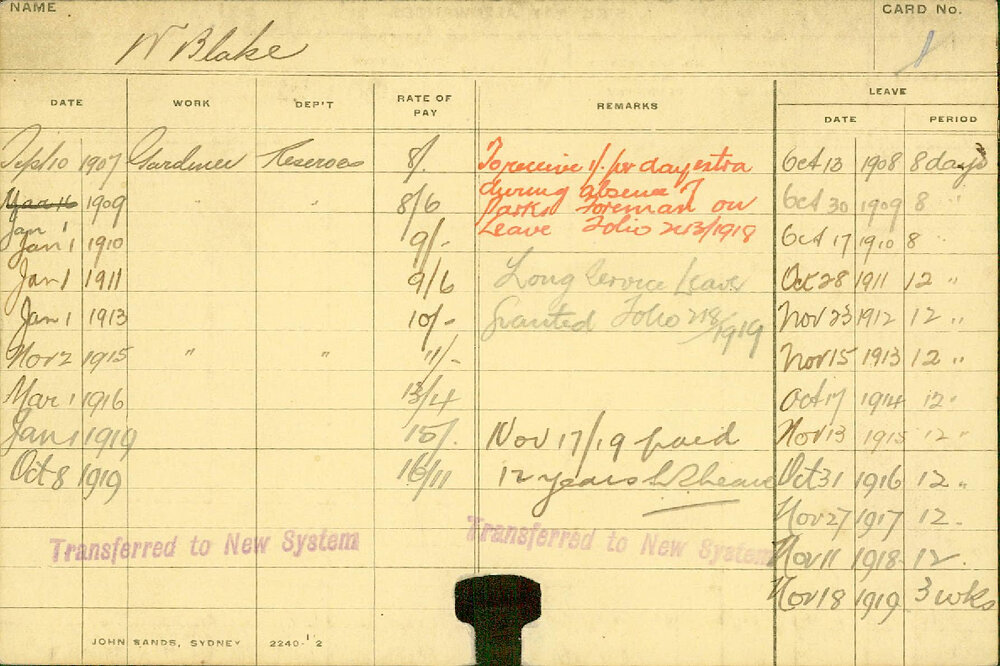 NAME
CARD No.
W Blake
1
DATE WORK DEP'T RATE OF PAY REMARKS LEAVE
DATE PERIOD
Sept 10 1907 Gardener Reserves 8/.
Mar 16 1909 " " 8/6
Jan 1
Jan 1 1910 9/-
Jan 1 1911 9/6
Jan 1 1913 10/-
Nov 2 1915 " " 11/-
Mar 1 1916 13/4
Jan 1 1919 15/.
Oct 8 1919 16/11
To receive 1/. per day extra
during absence of
Parks Foreman on
Leave Folio 213/1918
Long Service Leave
Granted Folio 218/1919
Nov 17/19 paid
12 years L S leave
Oct 13 1908 8 days
Oct 30 1909 8 "
Oct 17 1910 8 "
Oct 28 1911 12 "
Nov 23 1912 12 "
Nov 15 1913 12 "
Oct 17 1914 12 "
Nov 13 1915 12 "
Oct 31 1916 12 "
Nov 27 1917 12 .
Nov 11 1918 12 .
Nov 18 1919 3 wks
Transferred to New System
Transferred to New System
JOHN SANDS, SYDNEY 2240-12